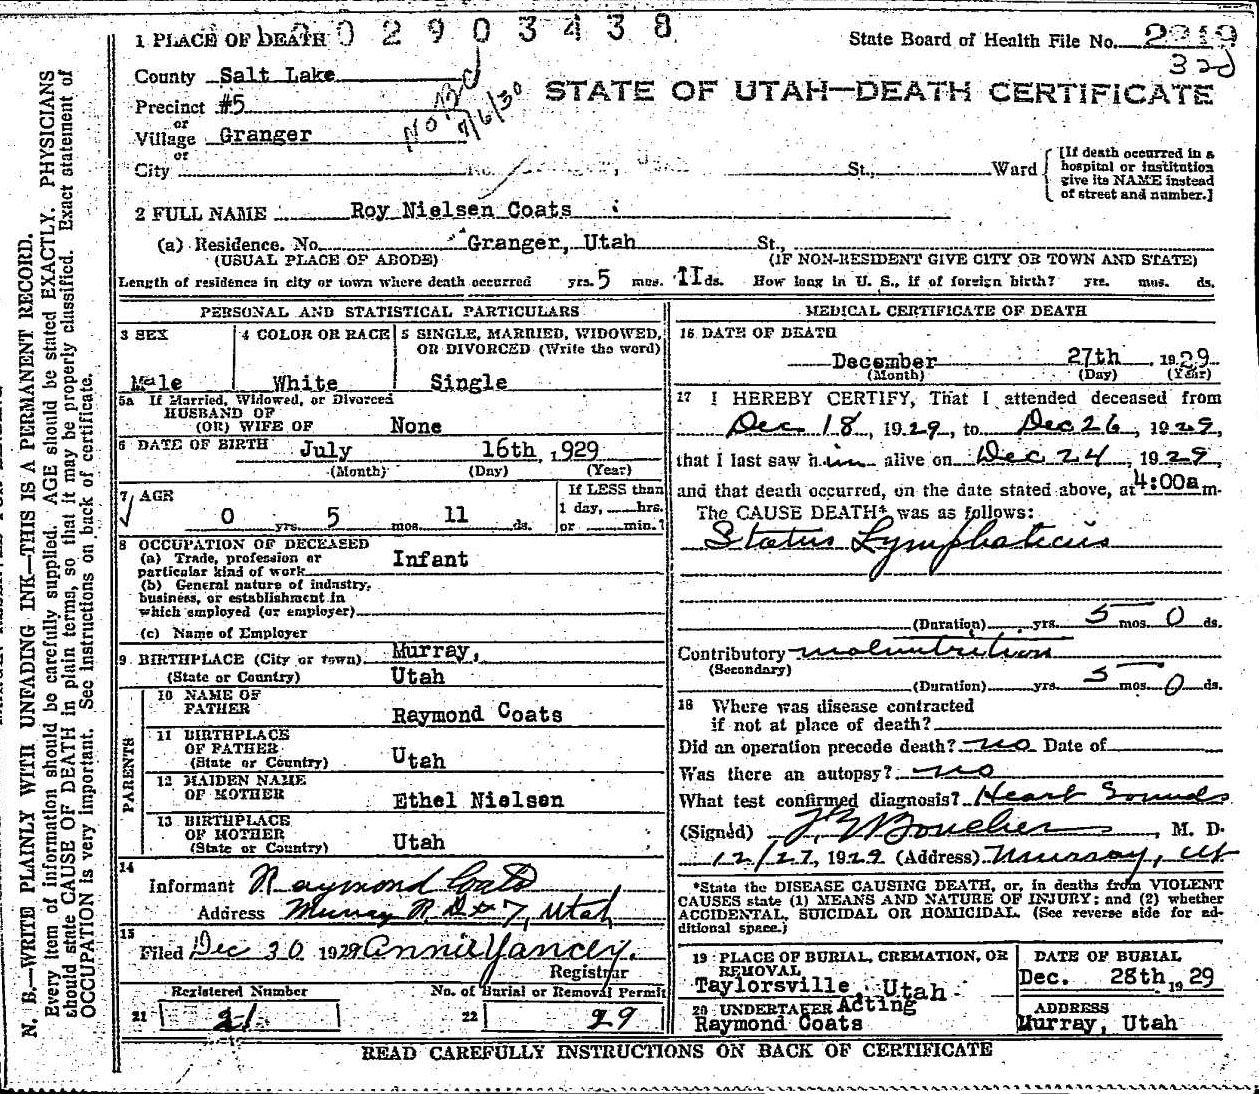 0 2 9 0 3 4 3 8
1 PLACE OF DEATH
State Board of Health File No.
32d
County Salt Lake
STATE OF UTAH—DEATH CERTIFICATE
Precinct #5
or
Village Granger
No Bd
9/6/30
or
City No. St., Ward
[If death occurred in a
hospital or institution
give its NAME instead
of street and number.]
2 FULL NAME Roy Nielsen Coats
(a) Residence. No. Granger, Utah St.,
(USUAL PLACE OF ABODE) (IF NON-RESIDENT GIVE CITY OR TOWN AND STATE)
Length of residence in city or town where death occurred yrs. 5 mos. 11 ds. How long in U. S., if of foreign birth? yrs. mos. ds.
PERSONAL AND STATISTICAL PARTICULARS
3 SEX
Male
4 COLOR OR RACE
White
5 SINGLE, MARRIED, WIDOWED,
OR DIVORCED (Write the word)
Single
5a If Married, Widowed, or Divorced
HUSBAND OF
(OR) WIFE OF None
6 DATE OF BIRTH July 16th, 1929
(Month) (Day) (Year)
7 AGE
0 yrs. 5 mos. 11 ds.
If LESS than
1 day, hrs.
or min.?
8 OCCUPATION OF DECEASED
(a) Trade, profession or
particular kind of work Infant
(b) General nature of industry,
business, or establishment in
which employed (or employer)
(c) Name of Employer
9 BIRTHPLACE (City or town) Murray,
(State or Country) Utah
PARENTS
10 NAME OF
FATHER Raymond Coats
11 BIRTHPLACE
OF FATHER
(State or Country) Utah
12 MAIDEN NAME
OF MOTHER Ethel Nielsen
13 BIRTHPLACE
OF MOTHER
(State or Country) Utah
14
Informant Raymond Coats
Address Murray R D #7, Utah
15
Filed Dec 30 1929 Annie Yancey.
Registrar
Registered Number
21 21
No. of Burial or Removal Permit
22 29
MEDICAL CERTIFICATE OF DEATH
16 DATE OF DEATH
December 27th 1929
(Month) (Day) (Year)
17 I HEREBY CERTIFY, That I attended deceased from
Dec. 18, 1929, to Dec 26, 1929,
that I last saw him alive on Dec 24, 1929,
and that death occurred, on the date stated above, at 4:00am.
The CAUSE DEATH* was as follows:
Status Lymphaticus
(Duration) yrs. 5 mos. 0 ds.
Contributory malnutrition
(Secondary)
(Duration) yrs. 5 mos. 0 ds.
18 Where was disease contracted
if not at place of death?
Did an operation precede death? no Date of
Was there an autopsy? no
What test confirmed diagnosis? Heart Sounds
(Signed) Boucher, M. D.
12/27, 1929 (Address) Murray, Ut
*State the DISEASE CAUSING DEATH, or, in deaths from VIOLENT
CAUSES state (1) MEANS AND NATURE OF INJURY; and (2) whether
ACCIDENTAL, SUICIDAL OR HOMICIDAL. (See reverse side for ad-
ditional space.)
19 PLACE OF BURIAL, CREMATION, OR
REMOVAL
Taylorsville, Utah
DATE OF BURIAL
Dec. 28th, 1929
20 UNDERTAKER Acting
Raymond Coats
ADDRESS
Murray, Utah
READ CAREFULLY INSTRUCTIONS ON BACK OF CERTIFICATE
N. B.—WRITE PLAINLY WITH UNFADING INK—THIS IS A PERMANENT RECORD.
Every item of information should be carefully supplied. AGE should be stated EXACTLY. PHYSICIANS
should state CAUSE OF DEATH in plain terms, so that it may be properly classified. Exact statement of
OCCUPATION is very important. See instructions on back of certificate.